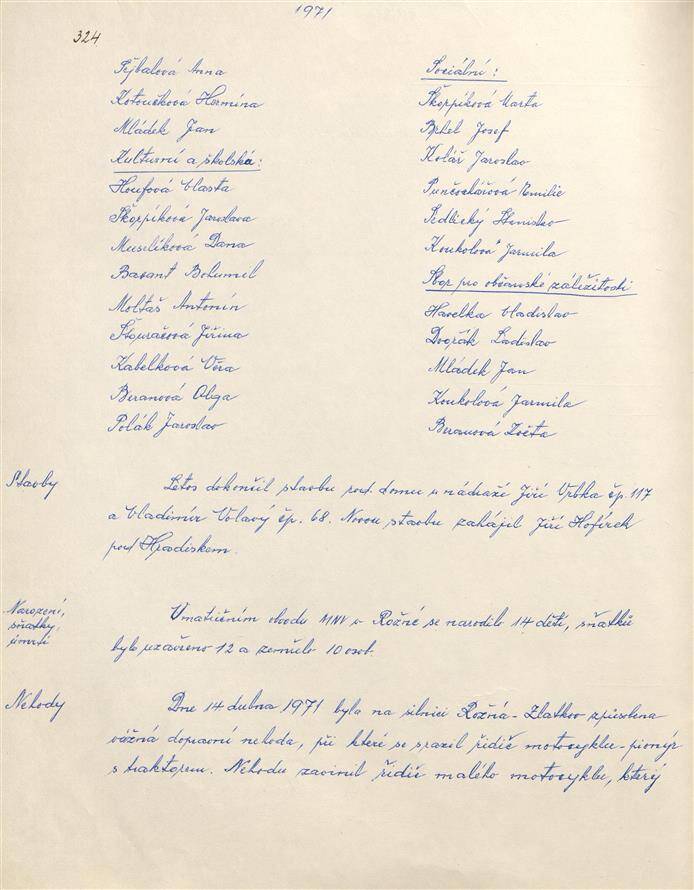 1971
324
Fejbalová Anna
Kotoučková Hermína
Mládek Jan
Kulturní a školská:
Houfová Vlasta
Škorpíková Jaroslava
Muselíková Dana
Basant Bohumel
Moltaš Antonín
Štouračová Jiřina
Kabelková Věra
Beranová Olga
Polák Jaroslav
Sociální:
Škorpíková Marta
Brtel Josef
Kolář Jaroslav
Punčochářová Emilie
Sedlický Stanislav
Koukolová Jarmila
Sbor pro občanské záležitosti
Havelka Vladislav
Dvořák Ladislav
Mládek Jan
Koukolová Jarmila
Beranová Květa
Stavby
Letos dokončil stavbu rod. domu u nádraží Jiří Vrbka čp. 117
a Vladimír Volavý čp. 68. Novou stavbu zahájil Jiří Hofírek
pod Hradiskem.
Narození,
sňatky,
úmrtí
V matričním obvodu MNV v Rožné se narodilo 14 dětí, sňatků
bylo uzavřeno 12 a zemřelo 10 osob.
Nehody
Dne 14 dubna 1971 byla na silnici Rožná - Zlatkov způsobena
vážná dopravní nehoda, při které se srazil řidič motocyklu - pionýr
s traktorem. Nehodu zavinil řidič malého motocyklu, který